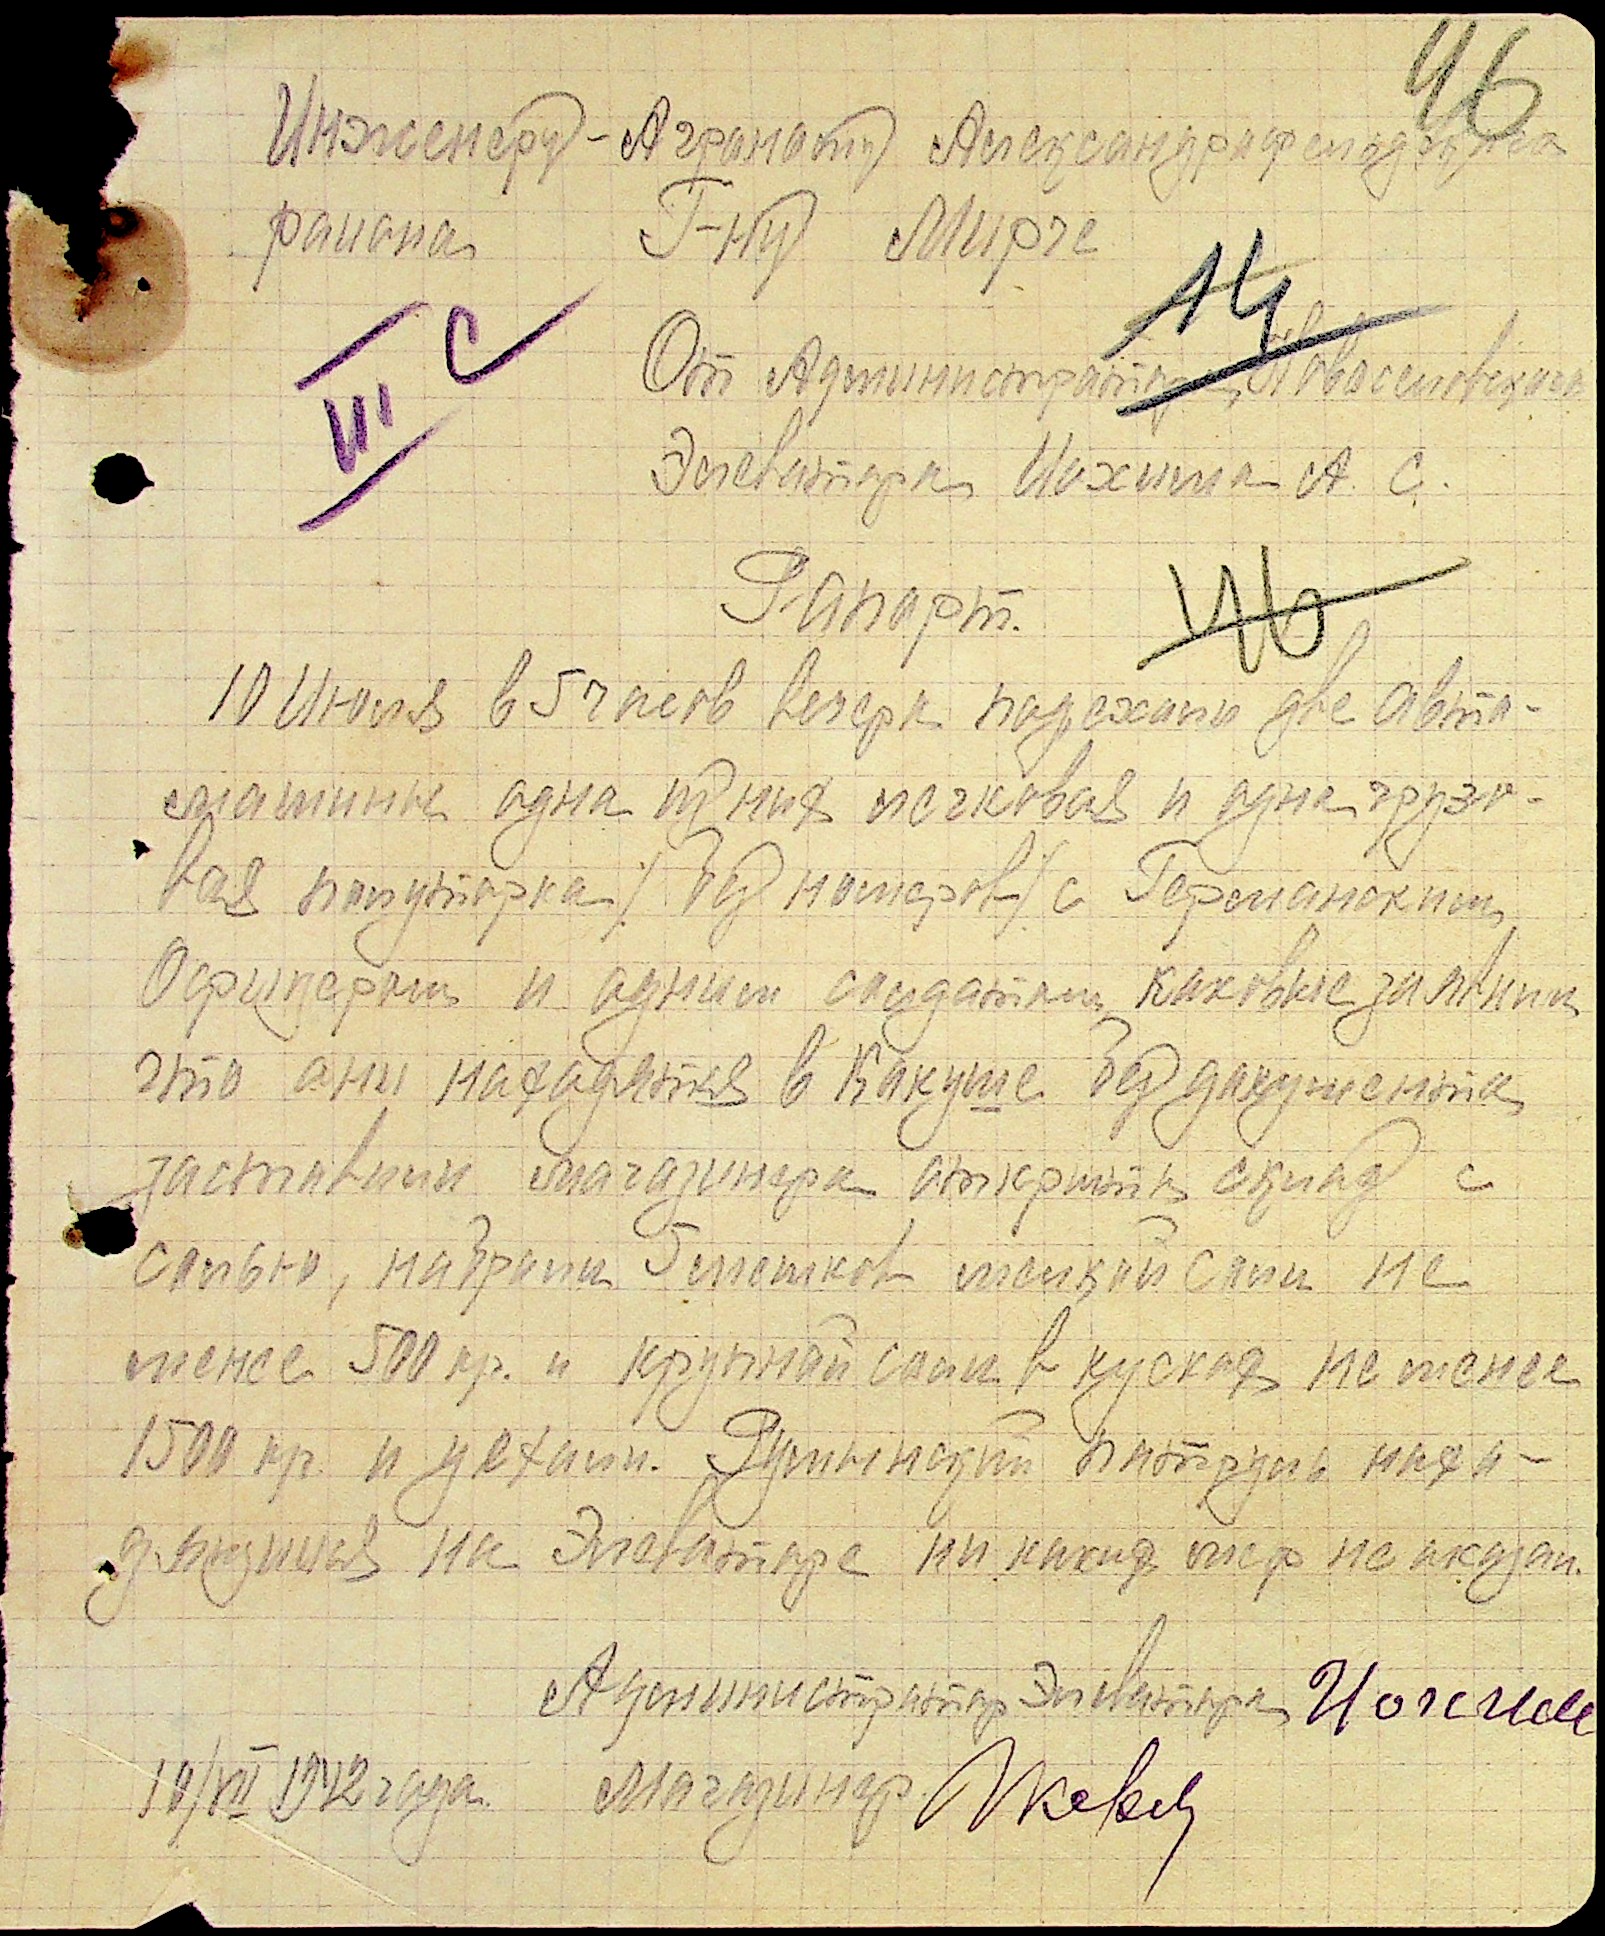 46
Инженеру-Агроному Александрофельдского
района Г-ну Мирче
14
III C
От Администратора Новоселовского
Элеватора Иохима А. С.
Рапорт.
46
10 Июля в 5 часов вечера подехали две авто-
машины одна из них легковая и одна грузо-
вая полуторка /без номеров/ с Германским
Офицером и одним солдатом каковые заявили
что они находятся в Какуше без документа
заставили магазинера открыть склад с
солью, набрали 5 мешков мелкой соли не
менее 500 кр. и крупной соли в кусках не менее
1500 кр. и уехали. Румынский патруль нахо-
дящийся на Элеваторе ни каких мер не оказал.
Администратор Элеватора Иохим
10/VII 1942 года. Магазинер